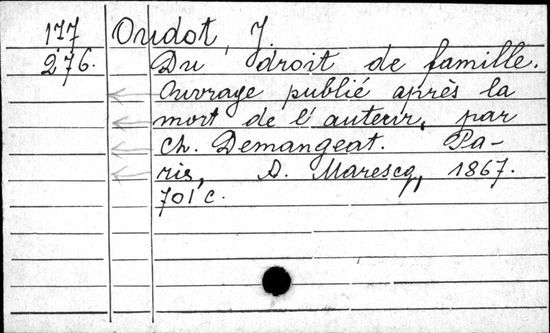 177 Oudot, J.
276. Du droit de famille.
Ouvrage publié après la
mort de l'auteur, par
Ch. Demangeat. Pa-
ris, A. Marescq, 1867.
701 c.